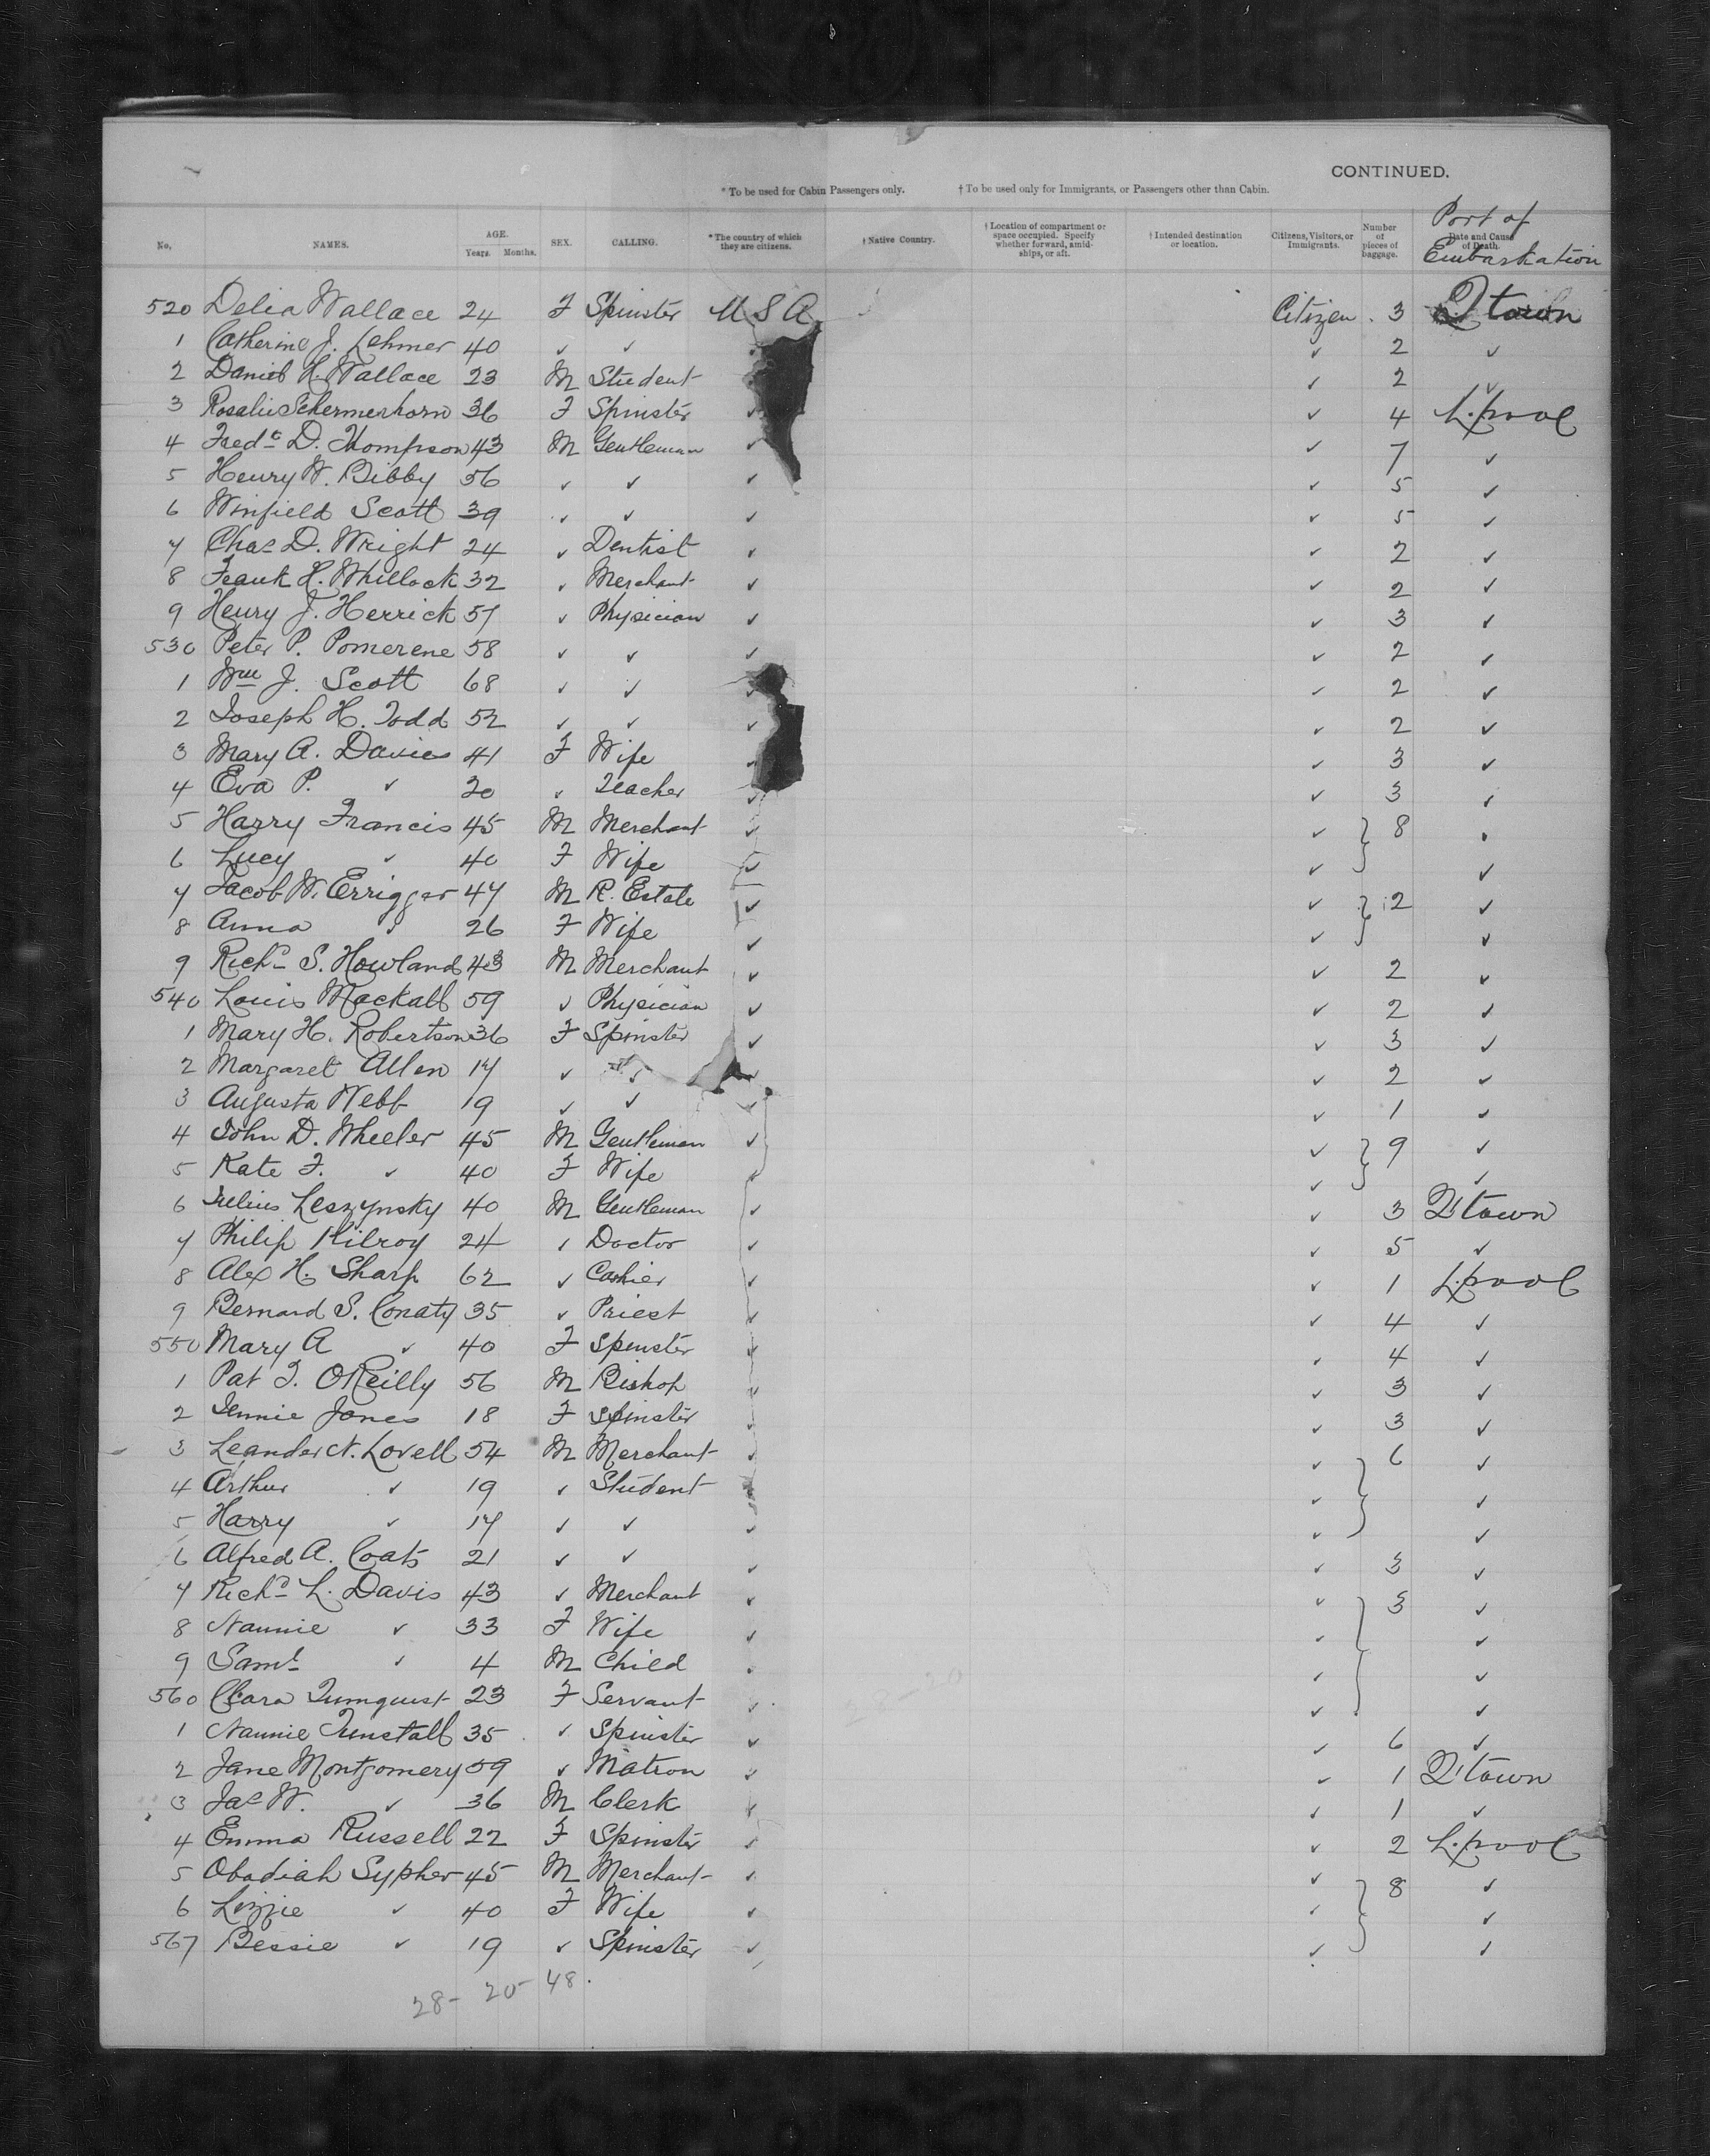 CONTINUED.
* To be used for Cabin Passengers only. † To be used only for Immigrants, or Passengers other than Cabin.
No. NAMES. AGE. Years. Months. SEX. CALLING. * The country of which they are citizens. † Native Country. † Location of compartment or space occupied. Specify whether forward, amidships, or aft. † Intended destination or location. Citizens, Visitors, or Immigrants. Number of pieces of baggage. Date and Cause of Death. Port of Embarkation
520 Delia Wallace 24 F Spinster U S A Citizen 3 Q'town
1 Catherine J. Lehmer 40 ✓ ✓ ✓ 2 ✓
2 Daniel H. Wallace 23 M Student ✓ 2 ✓
3 Rosalie Schermerhorn 36 F Spinster ✓ ✓ 4 L.pool
4 Fredc D. Thompson 43 M Gentleman ✓ ✓ 7 ✓
5 Henry W. Bibby 56 ✓ ✓ ✓ ✓ 5 ✓
6 Winfield Scott 39 ✓ ✓ ✓ ✓ 5 ✓
7 Chas D. Wright 24 ✓ Dentist ✓ ✓ 2 ✓
8 Frank H. Whillock 32 ✓ Merchant ✓ ✓ 2 ✓
9 Henry J. Herrick 57 ✓ Physician ✓ ✓ 3 ✓
530 Peter P. Pomerene 58 ✓ ✓ ✓ ✓ 2 ✓
1 Wm J. Scott 68 ✓ ✓ ✓ ✓ 2 ✓
2 Joseph H. Todd 52 ✓ ✓ ✓ ✓ 2 ✓
3 Mary A. Davies 41 F Wife ✓ ✓ 3 ✓
4 Eva P. ✓ 20 ✓ Teacher ✓ ✓ 3 ✓
5 Harry Francis 45 M Merchant ✓ ✓ } 8 ✓
6 Lucy ✓ 40 F Wife ✓ ✓ ✓
7 Jacob W. 47 M R. Estate ✓ ✓ } 2 ✓
8 Anna ✓ 26 F Wife ✓ ✓ ✓
9 Richd S. Howland 43 M Merchant ✓ ✓ 2 ✓
540 Louis Mackall 59 ✓ Physician ✓ ✓ 2 ✓
1 Mary H. Robertson 36 F Spinster ✓ ✓ 3 ✓
2 Margaret Allen 17 ✓ ✓ ✓ ✓ 2 ✓
3 Augusta Webb 19 ✓ ✓ ✓ ✓ 1 ✓
4 John D. Wheeler 45 M Gentleman ✓ ✓ } 9 ✓
5 Kate F. ✓ 40 F Wife ✓ ✓ ✓
6 Julius Leszynsky 40 M Gentleman ✓ ✓ 3 Q'town
7 Philip Kilroy 24 ✓ Doctor ✓ ✓ 5 ✓
8 Alex H. Sharp 62 ✓ Cashier ✓ ✓ 1 L.pool
9 Bernard S. Conaty 35 ✓ Priest ✓ ✓ 4 ✓
550 Mary A ✓ 40 F Spinster ✓ ✓ 4 ✓
1 Pat T. OReilly 56 M Bishop ✓ ✓ 3 ✓
2 Jennie Jones 18 F Spinster ✓ ✓ 3 ✓
3 Leander N. Lovell 54 M Merchant ✓ ✓ } 6 ✓
4 Arthur ✓ 19 ✓ Student ✓ ✓ ✓
5 Harry ✓ 17 ✓ ✓ ✓ ✓ ✓
6 Alfred A. Coats 21 ✓ ✓ ✓ ✓ 3 ✓
7 Richd L. Davis 43 ✓ Merchant ✓ ✓ } 3 ✓
8 Nannie ✓ 33 F Wife ✓ ✓ ✓
9 Saml ✓ 4 M Child ✓ ✓ ✓
560 Clara 23 F Servant ✓ ✓ ✓
1 Nannie Tunstall 35 ✓ Spinster ✓ ✓ 6 ✓
2 Jane Montgomery 59 ✓ Matron ✓ ✓ 1 Q'town
3 Jas W. ✓ 36 M Clerk ✓ ✓ 1 ✓
4 Emma Russell 22 F Spinster ✓ ✓ 2 L.pool
5 Obadiah Sypher 45 M Merchant ✓ ✓ } 8 ✓
6 Lizzie ✓ 40 F Wife ✓ ✓ ✓
567 Bessie ✓ 19 ✓ Spinster ✓ ✓ ✓
28- 20- 48.